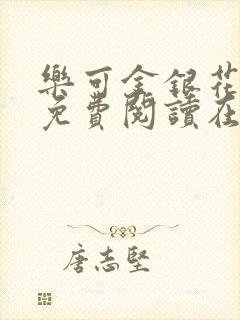 樂可金銀花
免費閱讀在
唐志堅